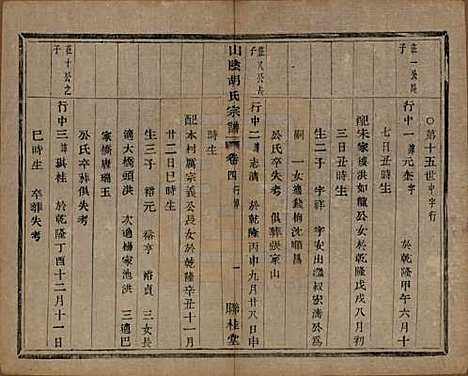 ○第十五世中字行
莊一公長子
行中一諱元奎字　於乾隆甲午六月十
七日丑時生
配朱家漊洪如龍公女於乾隆戊戌八月初
三日丑時生
生二子　字祥　字安出繼叔宏濤為
嗣　一女適錢梅沈順昌
公氏卒失考　俱葬張家山
莊八公長子
行中二諱志清　於乾隆丙申九月廿八日申
時生
山陰胡氏宗譜　卷四行傳　一　聯桂堂
配本村厲宗義公長女於乾隆辛丑十一月
廿二日巳時生
生三子　裕元　裕亨　裕貞　三女長
適大橋頭洪　次適楊家池洪　三適巴
家橋唐瑞玉
公氏卒葬俱失考
莊十公之子
行中三諱琪桂　於乾隆丁酉十二月十一日
巳時生　卒葬失考